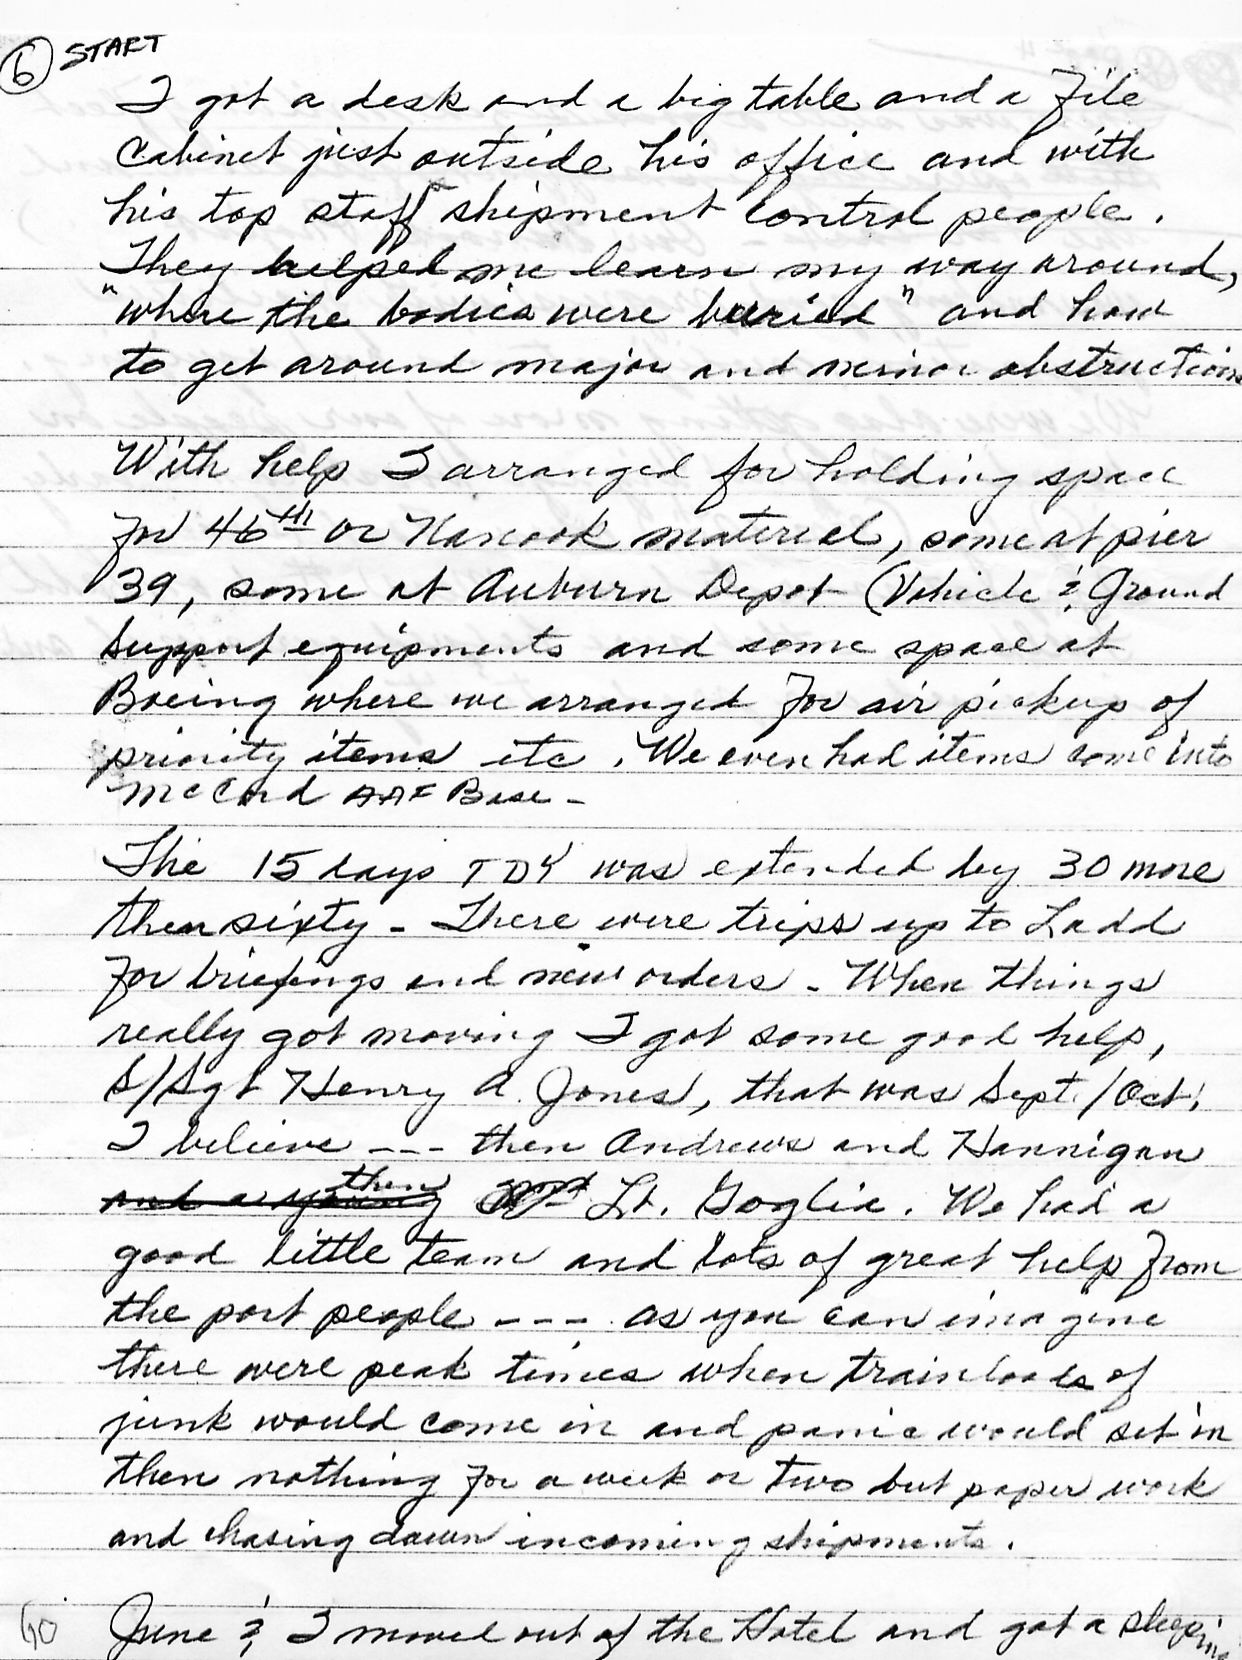 ⑥ START
I got a desk and a big table and a file
Cabinet just outside his office and with
his top staff shipment control people.
They helped me learn my way around,
"where the bodies were buried" and how
to get around major and minor obstructions
With help I arranged for holding space
for 46th or Nanook material, some at pier
39, some at Auburn Depot (Vehicle & Ground
Support equipments and some space at
Boeing where we arranged for air pickup of
priority items etc. We even had items come into
McCord AAF Base -
The 15 days TDY was extended by 30 more
then sixty - There were trips up to Ladd
for briefings and new orders - When things
really got moving I got some good help,
S/Sgt Henry A. Jones, that was Sept./Oct.
I believe --- then Andrews and Hannigan
then Lt. Goglia. We had a
good little team and lots of great help from
the port people --- as you can imagine
there were peak times when trainloads of
junk would come in and panic would set in
then nothing for a week or two but paper work
and chasing down incoming shipments.
June & I moved out of the Hotel and got a sleeping